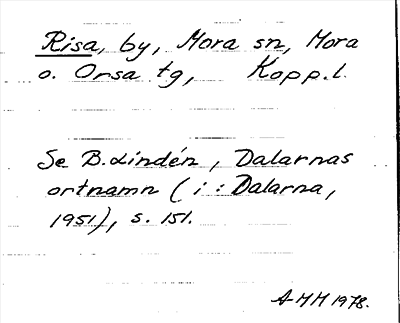 Risa, by, Mora sn, Mora
o. Orsa tg, Kopp.l.
Se B. Lindén, Dalarnas
ortnamn (i: Dalarna,
1951), s. 151.
AHH 1978.